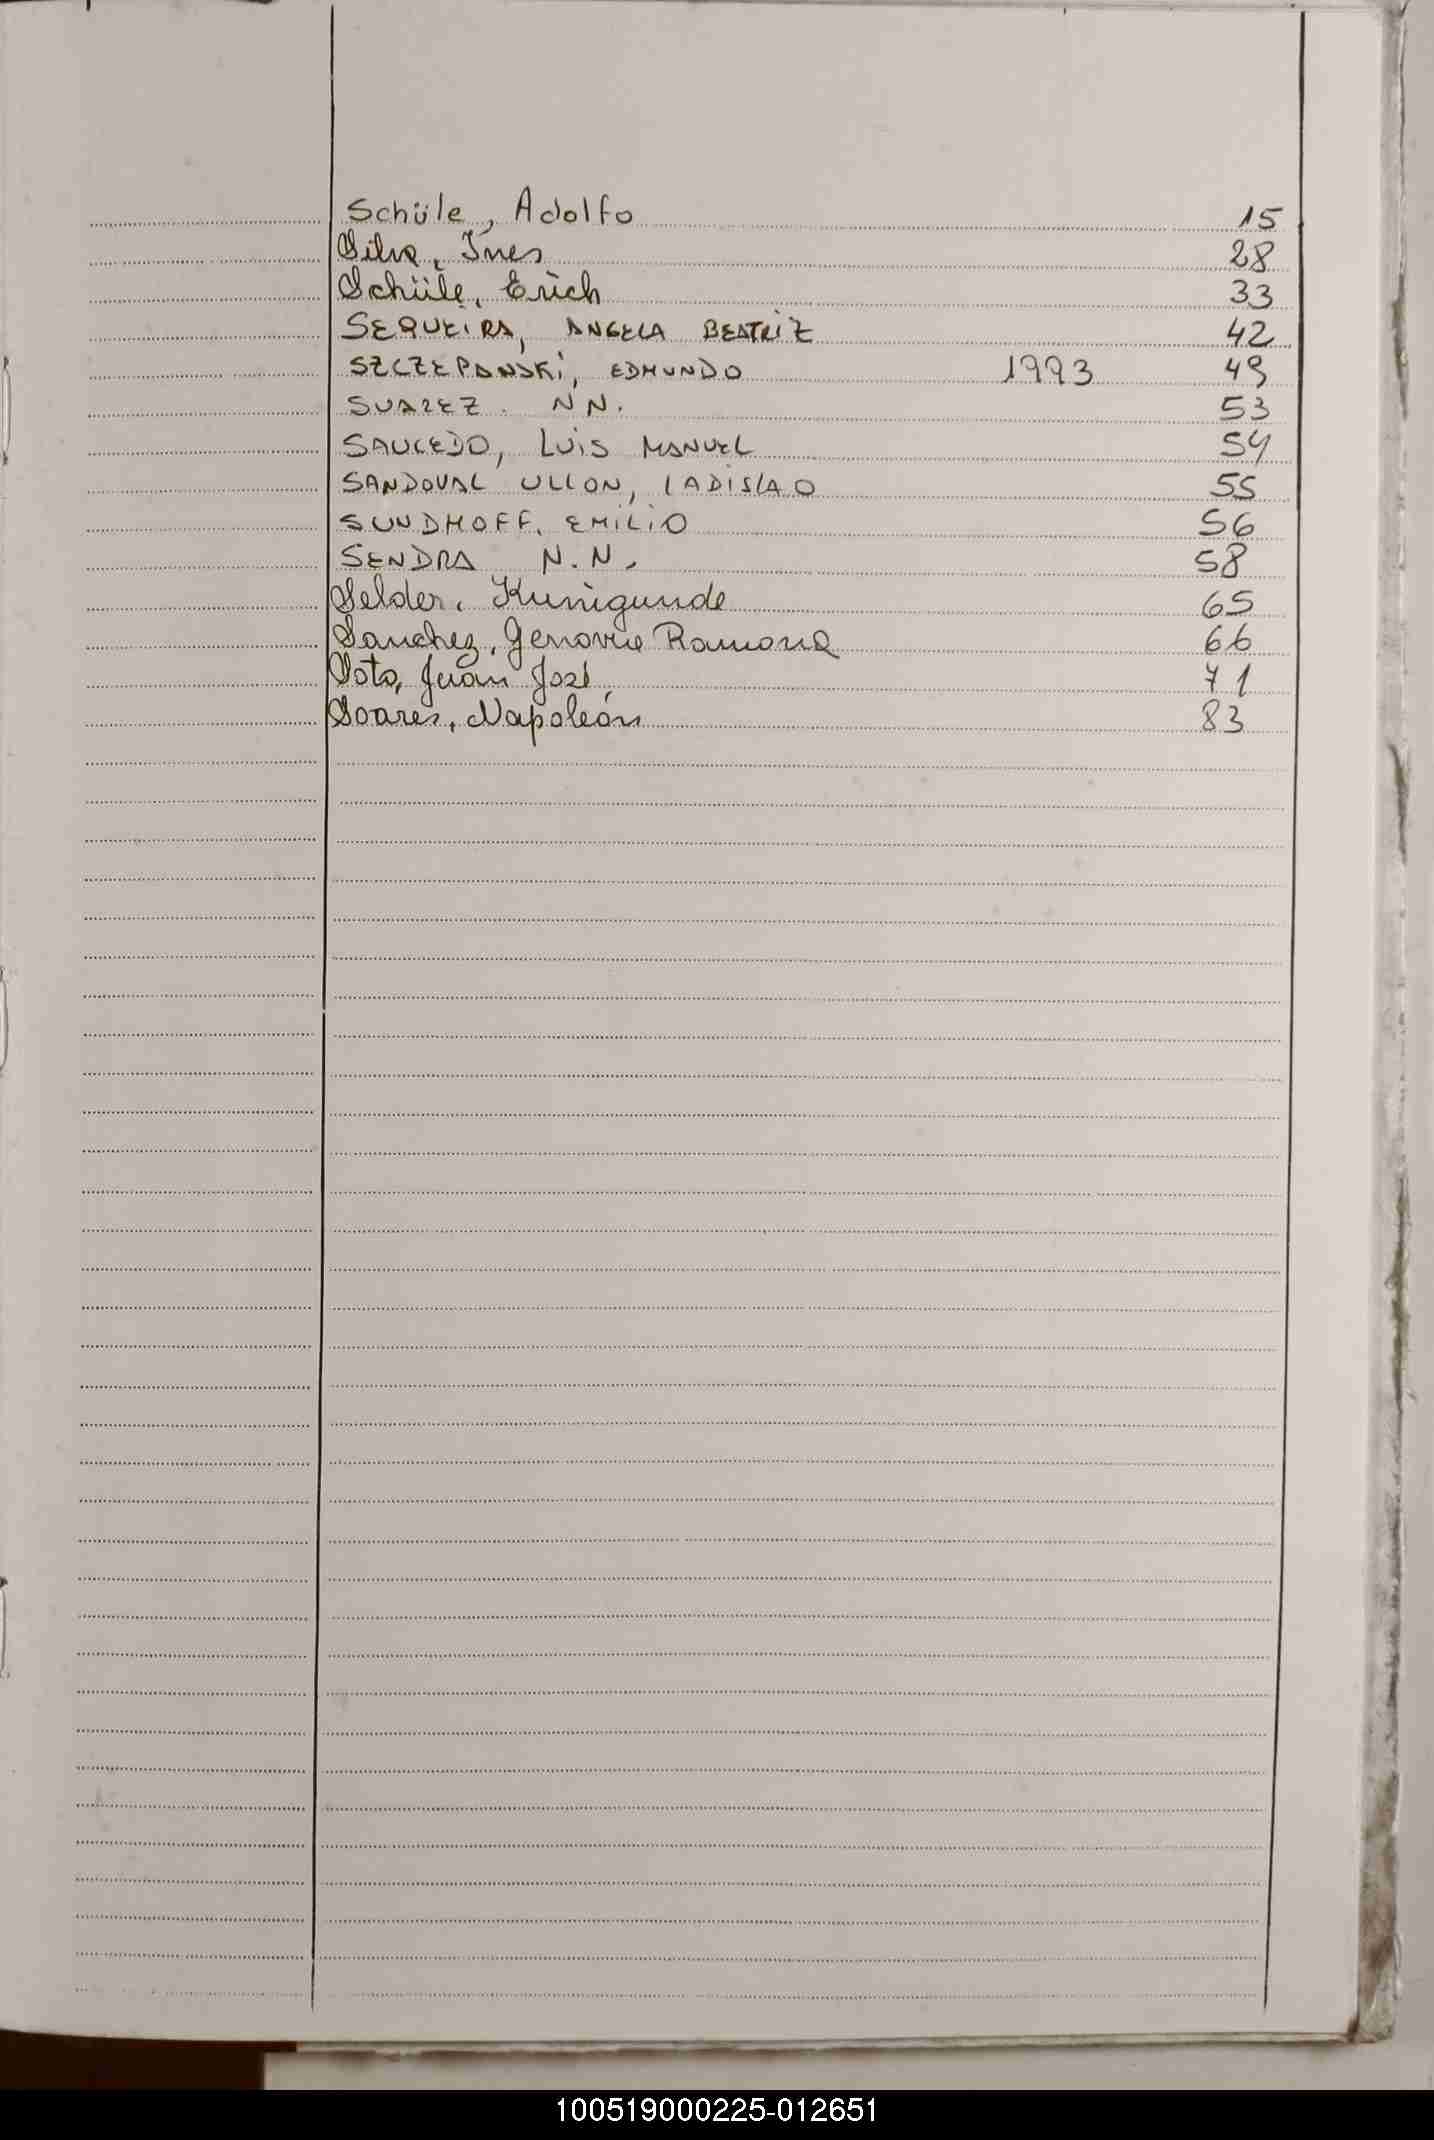 Schüle, Adolfo 15
Silva, Ines 28
Schüle, Erich 33
SEQUEIRA, ANGELA BEATRIZ 42
SZCZEPANSKI, EDMUNDO 1993 49
SUAREZ. NN. 53
SAUCEDO, LUIS MANUEL 54
SANDOVAL ULLON, LADISLAO 55
SUNDHOFF, EMILIO 56
SENDRA N.N. 58
Selder, Kunigunde 65
Sanchez, Ramona 66
Soto, Juan José, 71
Soares, Napoleón 83
100519000225-012651